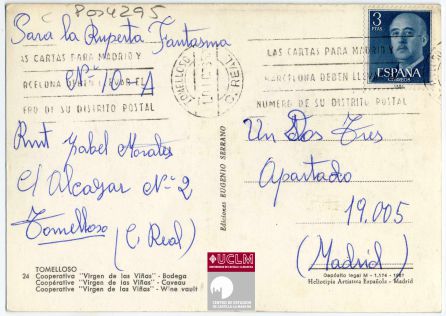 C 8004295
Para la Ruperta Fantasma
Nº 10 A
Rmt Isabel Morales
C/ Alcazar Nº 2
Tomelloso
(C. Real)
TOMELLOSO
24 Cooperativa "Virgen de las Viñas" - Bodega
Coopérative "Virgen de las Viñas" - Caveau
Cooperative "Virgen de las Viñas" - Wine vault
LAS CARTAS PARA MADRID Y
BARCELONA DEBEN LLEVAR EL
NUMERO DE SU DISTRITO POSTAL
TOMELLOSO
C. REAL
LAS CARTAS PARA MADRID Y
BARCELONA DEBEN LLEVAR
NUMERO DE SU DISTRITO POSTAL
3
PTAS
ESPAÑA
CORREOS
Ediciones EUGENIO SERRANO
Un Dos Tres
Apartado
19.005
(Madrid)
Depósito legal M - 1.174 -
Heliotipia Artística Española - Madrid
UCLM
UNIVERSIDAD DE CASTILLA-LA MANCHA
CENTRO DE ESTUDIOS
DE CASTILLA-LA MANCHA